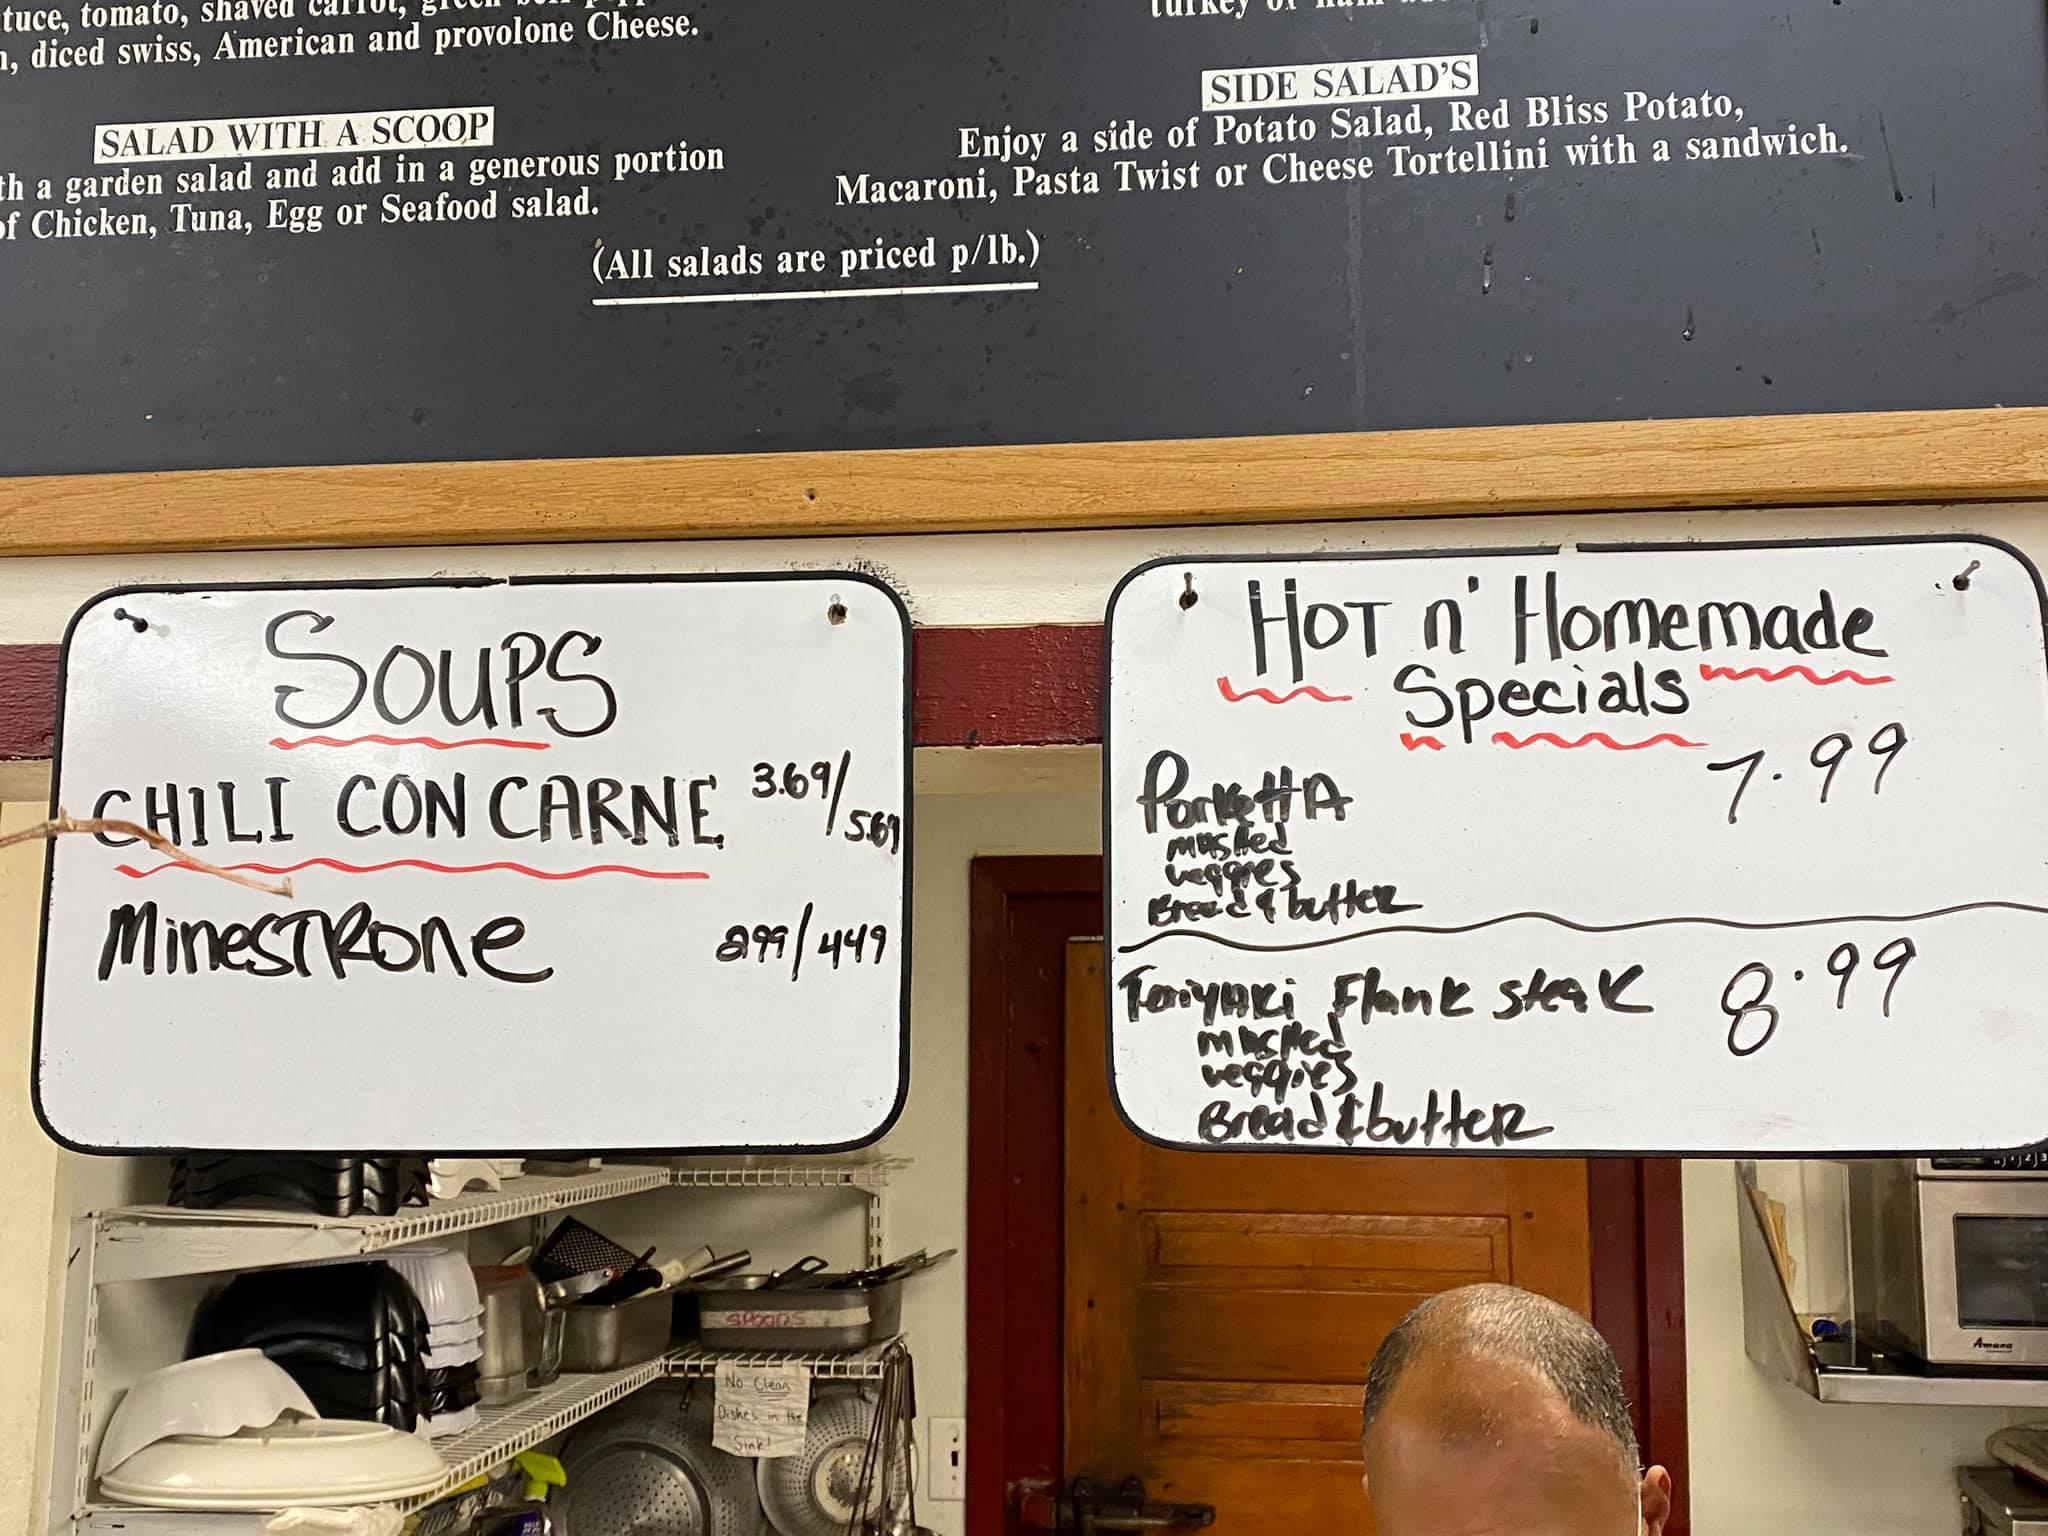 tuce, tomato, shaved carrot, green bell
n, diced swiss, American and provolone Cheese.
SALAD WITH A SCOOP
th a garden salad and add in a generous portion
of Chicken, Tuna, Egg or Seafood salad.
turkey or ham
SIDE SALAD'S
Enjoy a side of Potato Salad, Red Bliss Potato,
Macaroni, Pasta Twist or Cheese Tortellini with a sandwich.
(All salads are priced p/lb.)
SOUPS
CHILI CON CARNE 3.69/5.69
MINESTRONE 299/449
HOT n' Homemade
Specials
PorkettA 7.99
mashed
veggies
Bread & butter
Teriyaki Flank steak 8.99
mashed
veggies
Bread & butter
SPOONS
No Clean
Dishes in the
Sink!
Amana